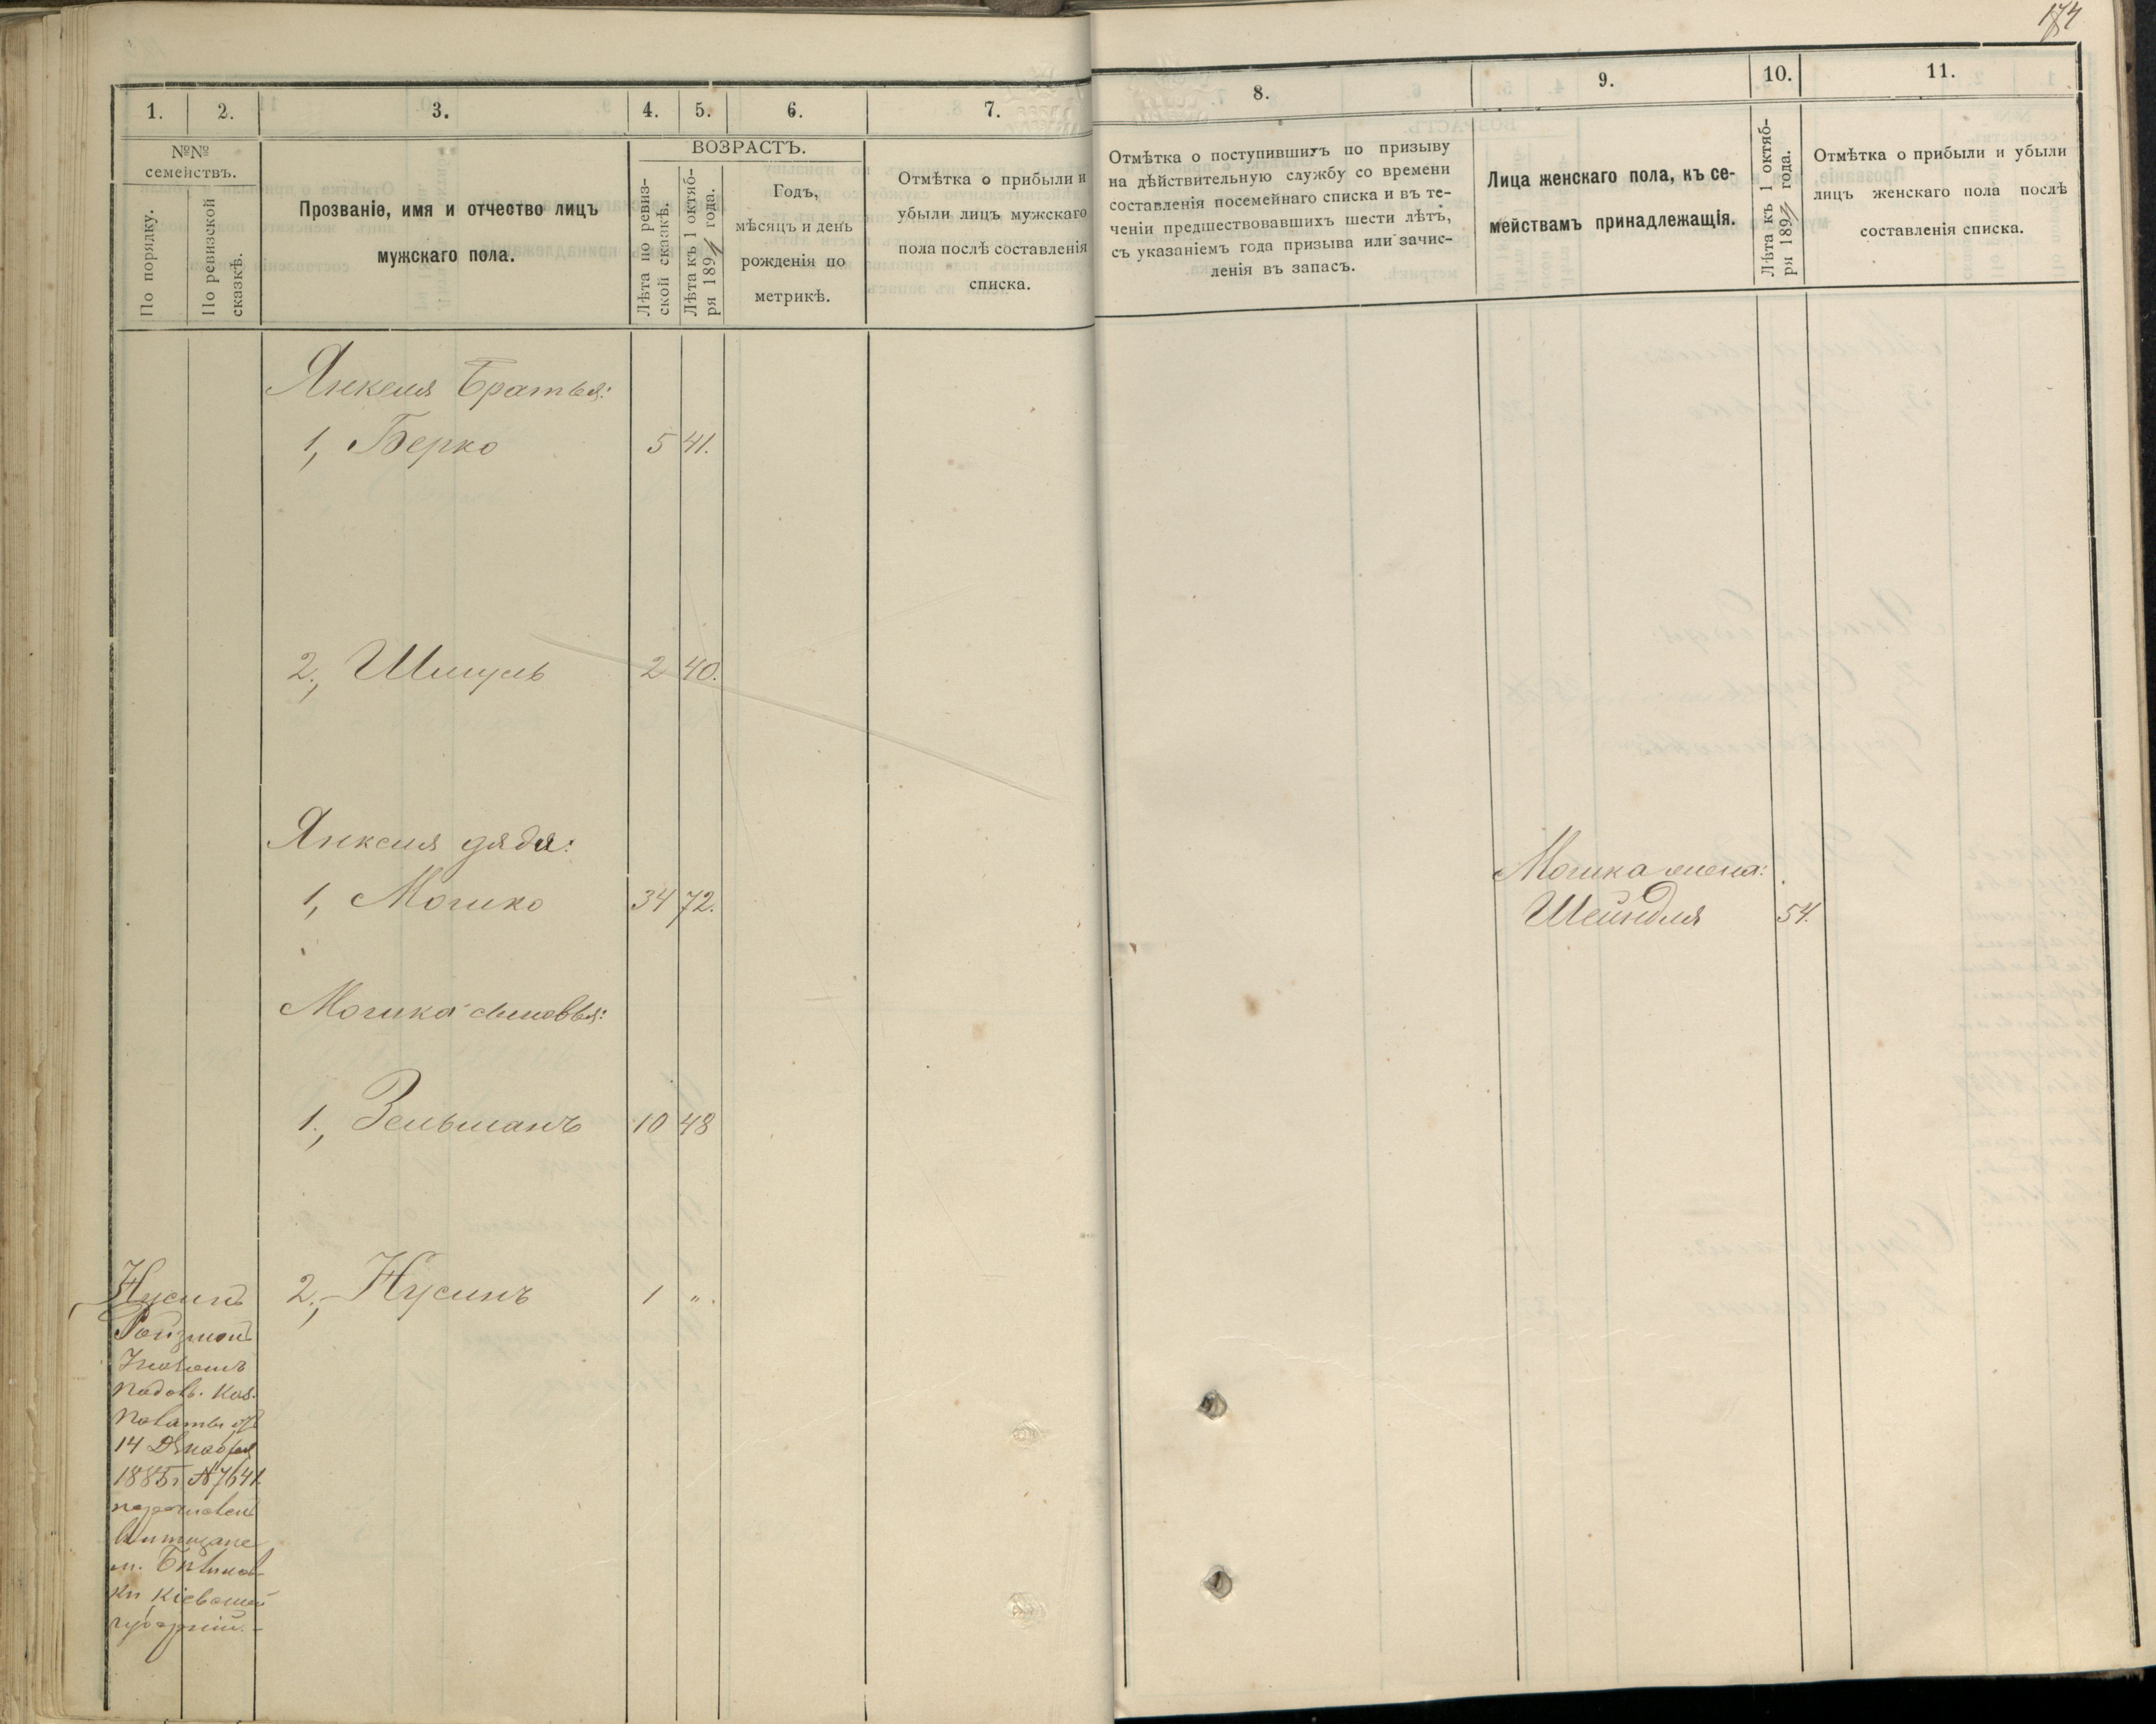 174
1.
2.
3.
4.
5.
6.
7.
8.
9.
10.
11.
№№ семействъ.
По порядку.
По ревизской сказкѣ.
Прозваніе, имя и отчество лицъ
мужскаго пола.
ВОЗРАСТЪ.
Лѣта по ревиз-
ской сказкѣ.
Лѣта къ 1 октяб-
ря 189 года.
Годъ,
мѣсяцъ и день
рожденія по
метрикѣ.
Отмѣтка о прибыли и
убыли лицъ мужскаго
пола послѣ составленія
списка.
Отмѣтка о поступившихъ по призыву
на дѣйствительную службу со времени
составленія посемейнаго списка и въ те-
ченіи предшествовавшихъ шести лѣтъ,
съ указаніемъ года призыва или зачис-
ленія въ запасъ.
Лица женскаго пола, къ се-
мействамъ принадлежащія.
Лѣта къ 1 октяб-
ря 189 года.
Отмѣтка о прибыли и убыли
лицъ женскаго пола послѣ
составленія списка.
Янкеля Братья:
1, Берко 5 41.
2., Шмуль 2 40.
Янкеля дядя:
1, Мошко 34 72.
Мошка жена:
Шейндля 54.
Мошка сыновья:
1., Зельманъ 10 48
2., Нусинъ 1 „.
Нусинъ
Ройзман
Указомъ
Подол. Каз.
Палаты отъ
14 Декабря
1885 г. № 7641
перечислен
в мещане
м.
ки Кіевской
губерніи.